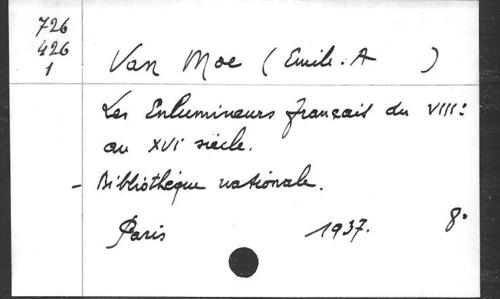 726
426
1
Van Moe (Emile. A )
Les Enlumineurs français du VIIIe
au XVIe siècle.
- Bibliothèque nationale.
Paris 1937. 8°